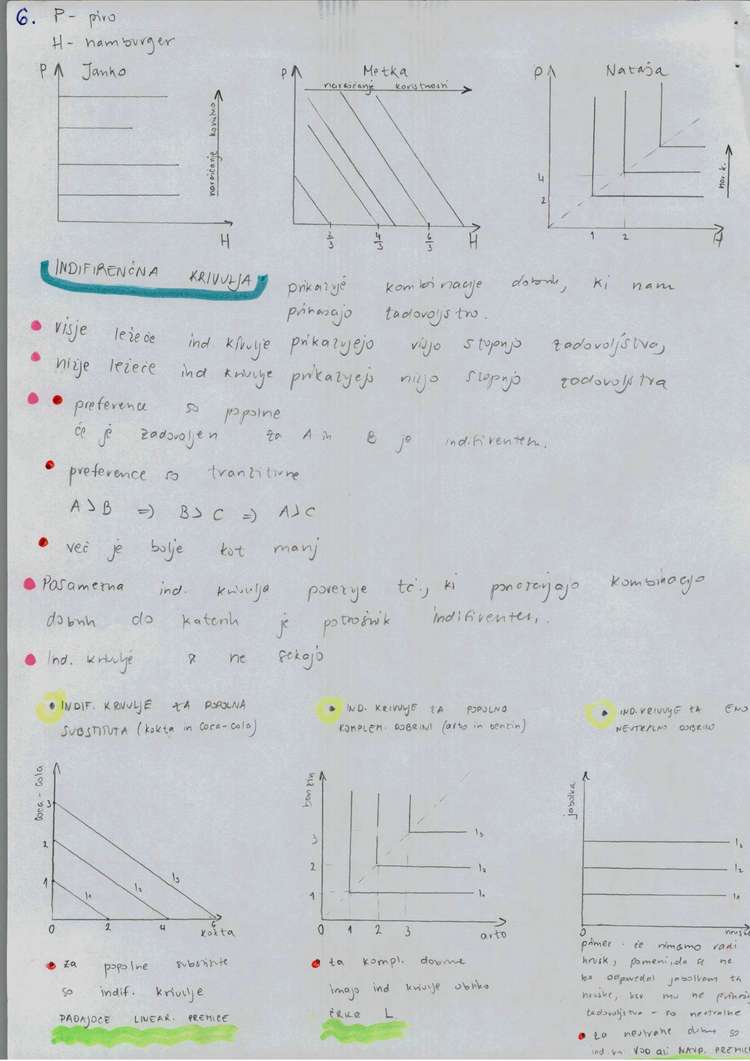 6. P - pivo
H - hamburger
P Janko
naraščanje koristno
H
P Metka
naraščanje koristnosti
2/3 4/3 6/3 H
P Nataša
4
2
1 2 H
nar. k.
INDIFIRENČNA KRIVULJA
prikazuje kombinacije dobrin, ki nam
prinašajo zadovoljstvo.
višje ležeče ind krivulje prikazujejo višjo stopnjo zadovoljstva,
nižje ležeče ind krivulje prikazujejo nižjo stopnjo zadovoljstva
preference so popolne
če je zadovoljen za A in B je indifirenten.
preference so tranzitivne
A > B => B > C => A > C
več je bolje kot manj
Posamezna ind. krivulja povezuje tč., ki ponazarjajo kombinacijo
dobrin do katerih je potrošnik indifirenten.
Ind. krivulje se ne sekajo
INDIF. KRIVULJE ZA POPOLNA
SUBSTITUTA (kokta in coca-cola)
Coca-cola
3
2
1
I1 I2 I3
0 2 4 6
kokta
za popolne substitute
so indif. krivulje
PADAJOČE LINEAR. PREMICE
IND. KRIVULJE ZA POPOLNO
KOMPLEM. DOBRINI (avto in benzin)
benzin
3
2
1
I3
I2
I1
0 1 2 3
avto
za kompl. dobrine
imajo ind krivulje obliko
ČRKE L
IND. KRIVULJE ZA ENO
NEVTRALNO DOBRINO
jabolka
I3
I2
I1
0
primer: če nimamo radi
hrušk, pomeni, da se ne
bo odpovedal jabolkam za
hruške, ker mu ne
zadovoljstva - so nevtralne
za nevtralne so
ind. VOD ali NAVP. PREMICE